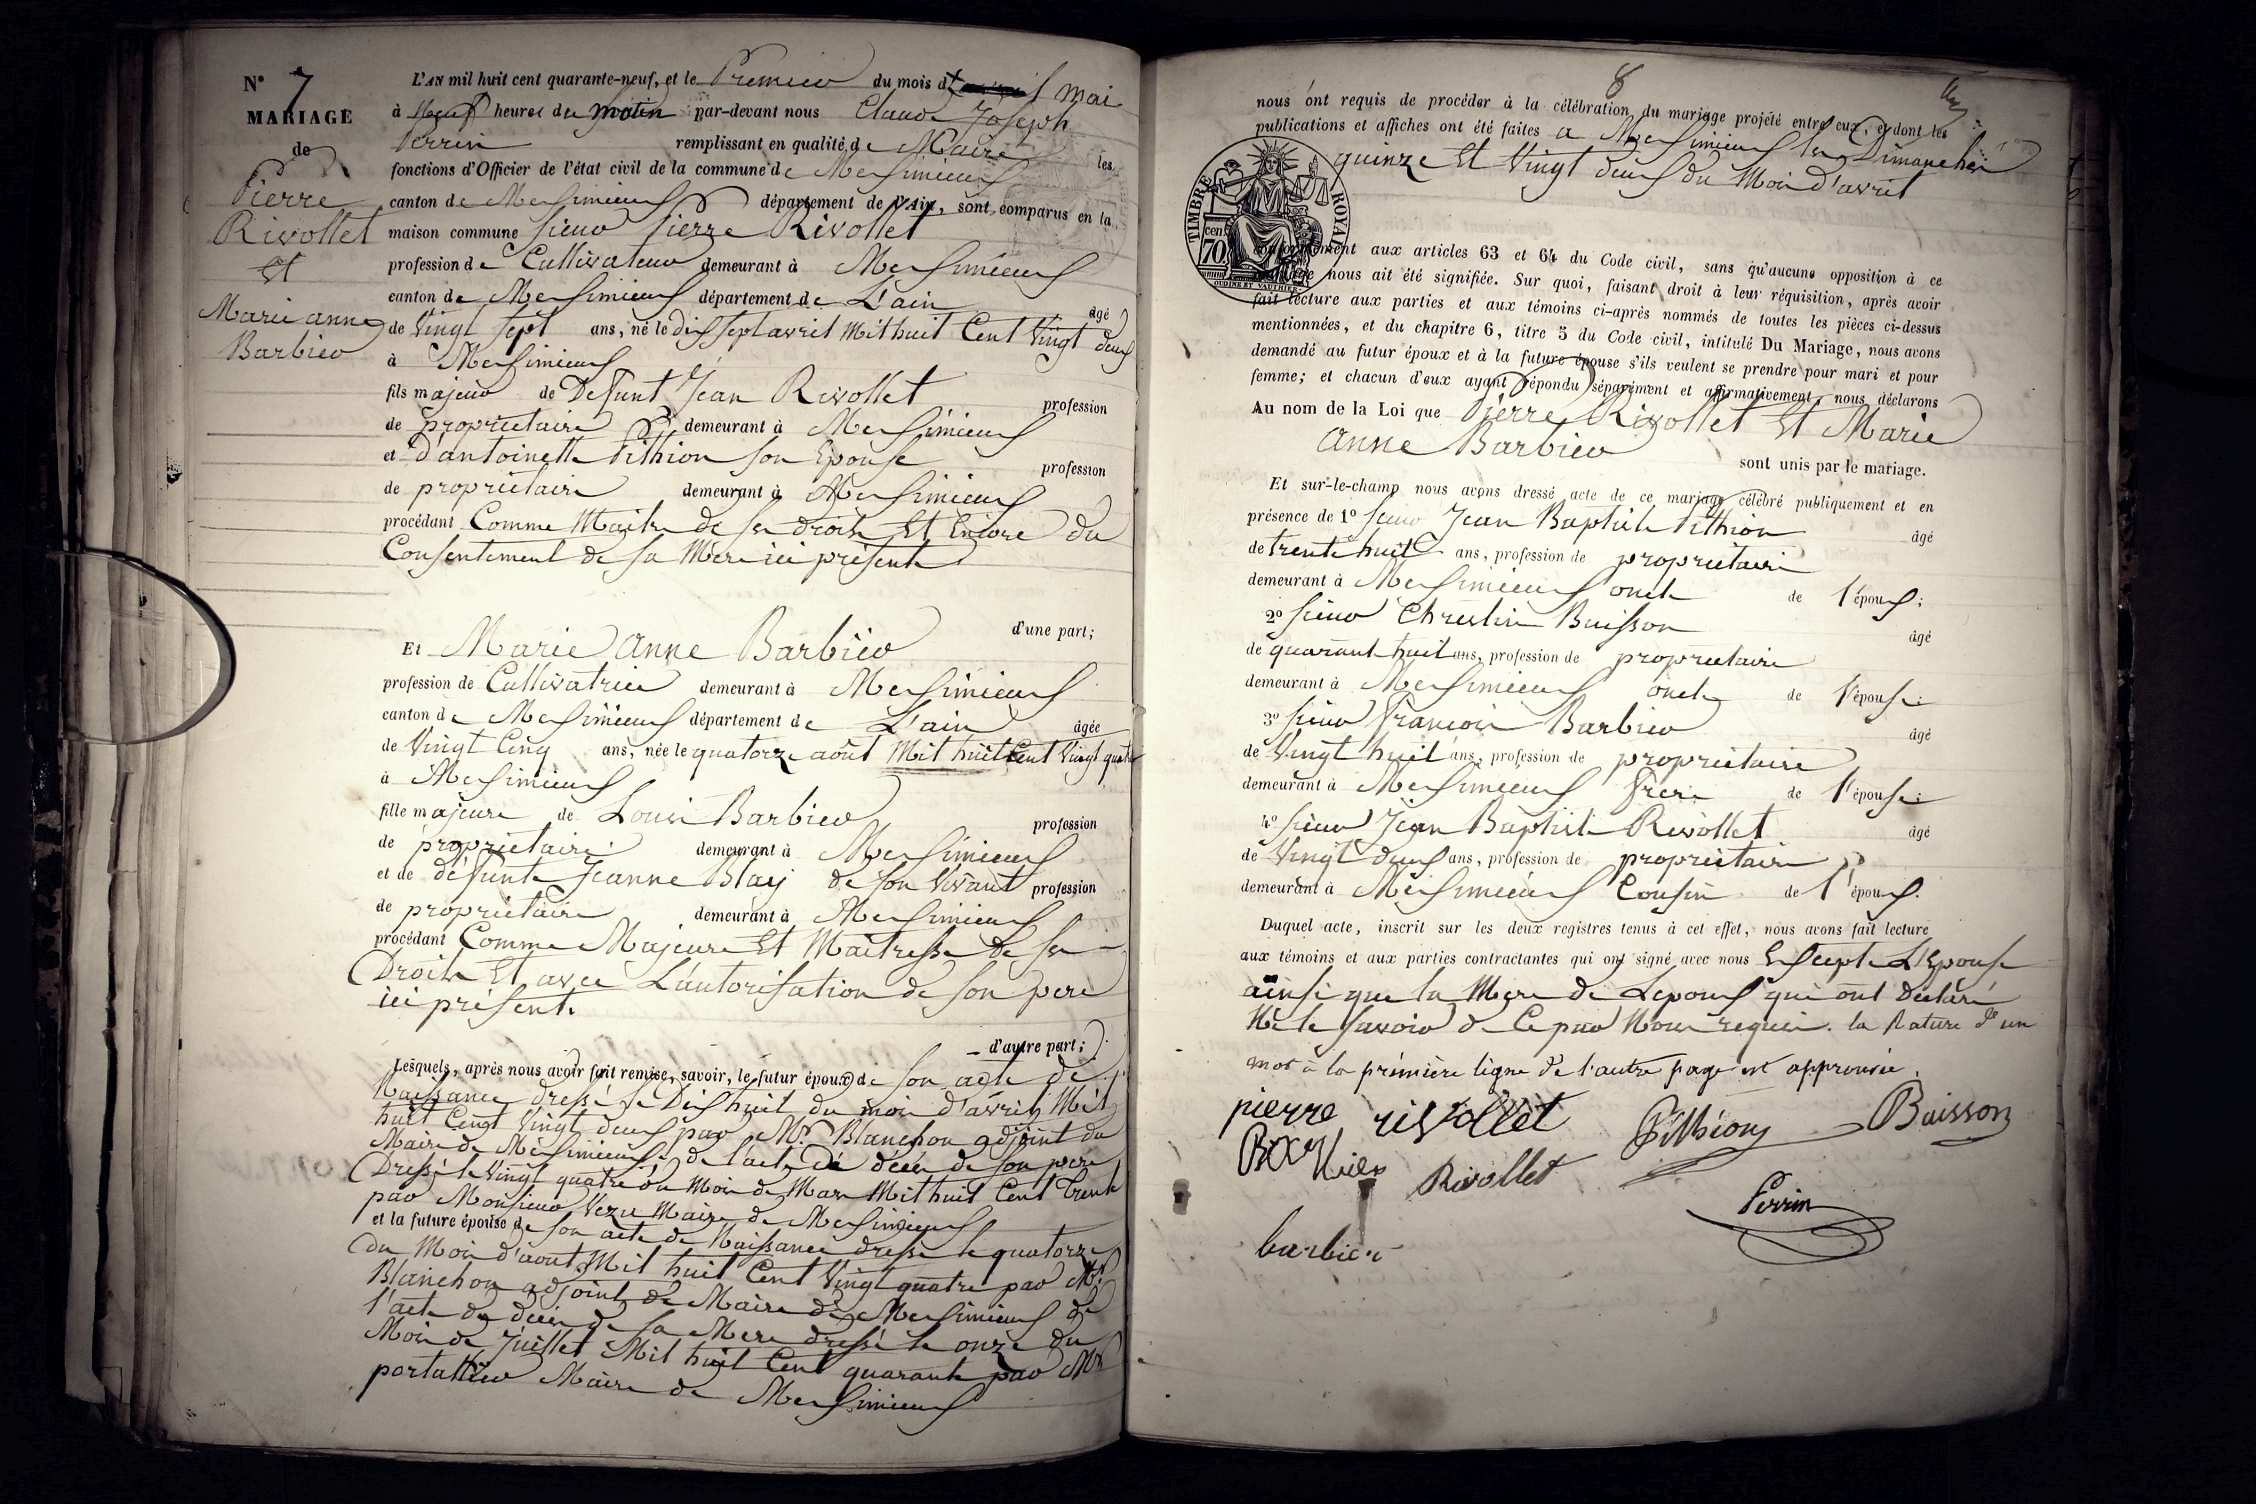 N° 7
MARIAGE
de
Pierre
Rivollet
Et
Marie anne
Barbier
L'AN mil huit cent quarante-neuf, et le Premier du mois d mai
à heures du matin par-devant nous Claude Joseph
Perrin remplissant en qualité de Maire les
fonctions d'Officier de l'état civil de la commune de Messimieux
canton de Messimieux département de l'AIN, sont comparus en la
maison commune sieur Pierre Rivollet
profession de Cultivateur demeurant à Messimieux
canton de Messimieux département de L'ain âgé
de Vingt sept ans, né le dix sept avril Mil huit Cent Vingt deux
à Messimieux
fils majeur de Defunt Jean Rivollet profession
de proprietaire demeurant à Messimieux
et D'antoinette Pithion son Epouse profession
de proprietaire demeurant à Messimieux
procédant Comme Maitre de ses droits Et Encore du
Consentement de sa Mere ici présente
d'une part;
Et Marie anne Barbier
profession de Cultivatrice demeurant à Messimieux
canton de Messimieux département de L'ain âgée
de Vingt Cinq ans, née le quatorze août Mil huit Cent Vingt quatre
à Messimieux
fille majeure de Louis Barbier profession
de proprietaire demeurant à Messimieux
et de défunte Jeanne Blay de son Vivant profession
de proprietaire demeurant à Messimieux
procédant Comme Majeure Et Maitresse de ses
Droits Et avec L'autorisation de son pere
ici présent.
d'autre part;
Lesquels, après nous avoir fait remise, savoir, le futur époux de son acte de
Naissance dressé le Dix huit du mois d'avril Mil
huit Cent Vingt deux par Mr Blanchon adjoint du
Maire de Messimieux de l'acte de décès de son pere
Dressé le Vingt quatre du Mois de Mars Mil huit Cent trente
par Monsieur Vezu Maire de Messimieux
et la future épouse de son acte de Naissance dressé le quatorze
du Mois d'aout Mil huit Cent Vingt quatre par Mr
Blanchon adjoint de Maire de Messimieux de
l'acte de décès de sa Mere dressé le onze du
Mois de Juillet Mil huit Cent quarante par Mr
portallier Maire de Messimieux
8
nous ont requis de procéder à la célébration du mariage projeté entre eux, et dont les
publications et affiches ont été faites a Messimieux les Dimanches
quinze Et Vingt deux du Mois d'avril
TIMBRE ROYAL
70 cen
OUDINÉ ET VAUTHIER
conformément aux articles 63 et 64 du Code civil, sans qu'aucune opposition à ce
mariage nous ait été signifiée. Sur quoi, faisant droit à leur réquisition, après avoir
fait lecture aux parties et aux témoins ci-après nommés de toutes les pièces ci-dessus
mentionnées, et du chapitre 6, titre 5 du Code civil, intitulé Du Mariage, nous avons
demandé au futur époux et à la future épouse s'ils veulent se prendre pour mari et pour
femme; et chacun d'eux ayant répondu séparément et affirmativement, nous déclarons
Au nom de la Loi que Pierre Rivollet Et Marie
anne Barbier
sont unis par le mariage.
Et sur-le-champ nous avons dressé acte de ce mariage célébré publiquement et en
présence de 1° sieur Jean Baptiste Pithion âgé
de trente huit ans, profession de proprietaire
demeurant à Messimieux oncle de l'époux;
2° sieur Christin Buisson âgé
de quarante huit ans, profession de proprietaire
demeurant à Messimieux oncle de l'épouse;
3° sieur Francois Barbier âgé
de Vingt huit ans, profession de proprietaire
demeurant à Messimieux Frere de l'épouse;
4° sieur Jean Baptiste Rivollet âgé
de Vingt deux ans, profession de proprietaire
demeurant à Messimieux Cousin de l'époux.
Duquel acte, inscrit sur les deux registres tenus à cet effet, nous avons fait lecture
aux témoins et aux parties contractantes qui ont signé avec nous Excepte L'Epouse
ainsi que la Mere de Lepoux qui ont Déclaré
Ne le savoir de Ce par Nous requis. la rature d'un
mot à la première ligne de l'autre page est approuvée.
pierre rivollet Pithion Buisson
Rivollet
Perrin
barbier